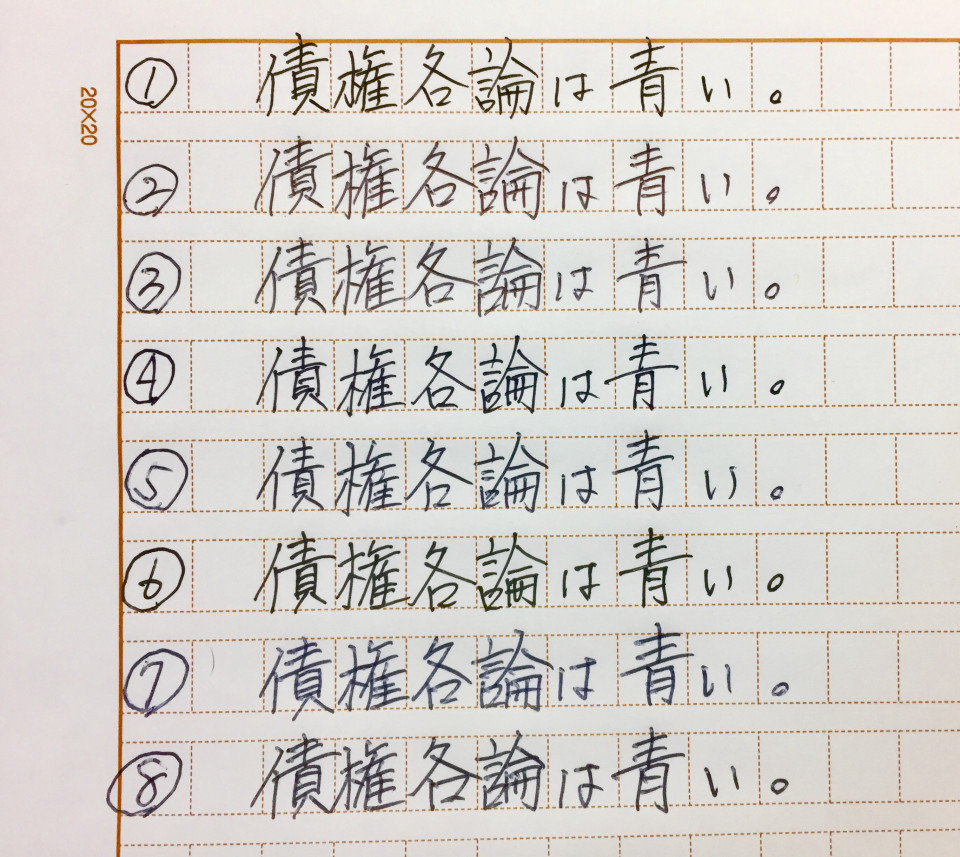 20×20
① 債権各論は青い。
② 債権各論は青い。
③ 債権各論は青い。
④ 債権各論は青い。
⑤ 債権各論は青い。
⑥ 債権各論は青い。
⑦ 債権各論は青い。
⑧ 債権各論は青い。